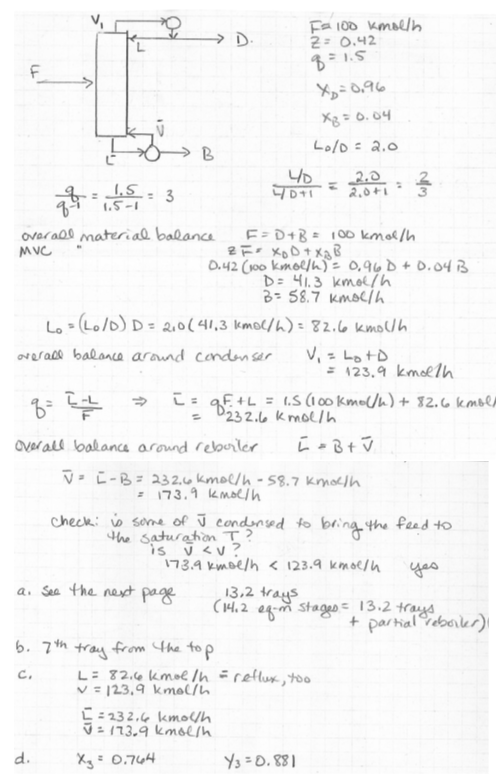 V₁
L
D.
F
V̄
L̄
B
F = 100 kmol/h
z = 0.42
q = 1.5
x_D = 0.96
x_B = 0.04
L₀/D = 2.0
q/(q-1) = 1.5/(1.5-1) = 3
(L/D)/(L/D+1) = 2.0/(2.0+1) = 2/3
overall material balance F = D+B = 100 kmol/h
MVC " zF = x_D D + x_B B
0.42 (100 kmol/h) = 0.96 D + 0.04 B
D = 41.3 kmol/h
B = 58.7 kmol/h
L₀ = (L₀/D) D = 2.0 (41.3 kmol/h) = 82.6 kmol/h
overall balance around condenser V₁ = L₀ + D
= 123.9 kmol/h
q = (L̄-L)/F ⇒ L̄ = qF + L = 1.5 (100 kmol/h) + 82.6 kmol/
= 232.6 kmol/h
Overall balance around reboiler L̄ = B + V̄
V̄ = L̄ - B = 232.6 kmol/h - 58.7 kmol/h
= 173.9 kmol/h
check: is some of V̄ condensed to bring the feed to
the saturation T?
is V̄ < V?
173.9 kmol/h < 123.9 kmol/h yes
a. see the next page 13.2 trays
(14.2 eq-m stages = 13.2 trays
+ partial reboiler)
b. 7th tray from the top
c. L = 82.6 kmol/h = reflux, too
V = 123.9 kmol/h
L̄ = 232.6 kmol/h
V̄ = 173.9 kmol/h
d. x₃ = 0.764 y₃ = 0.881